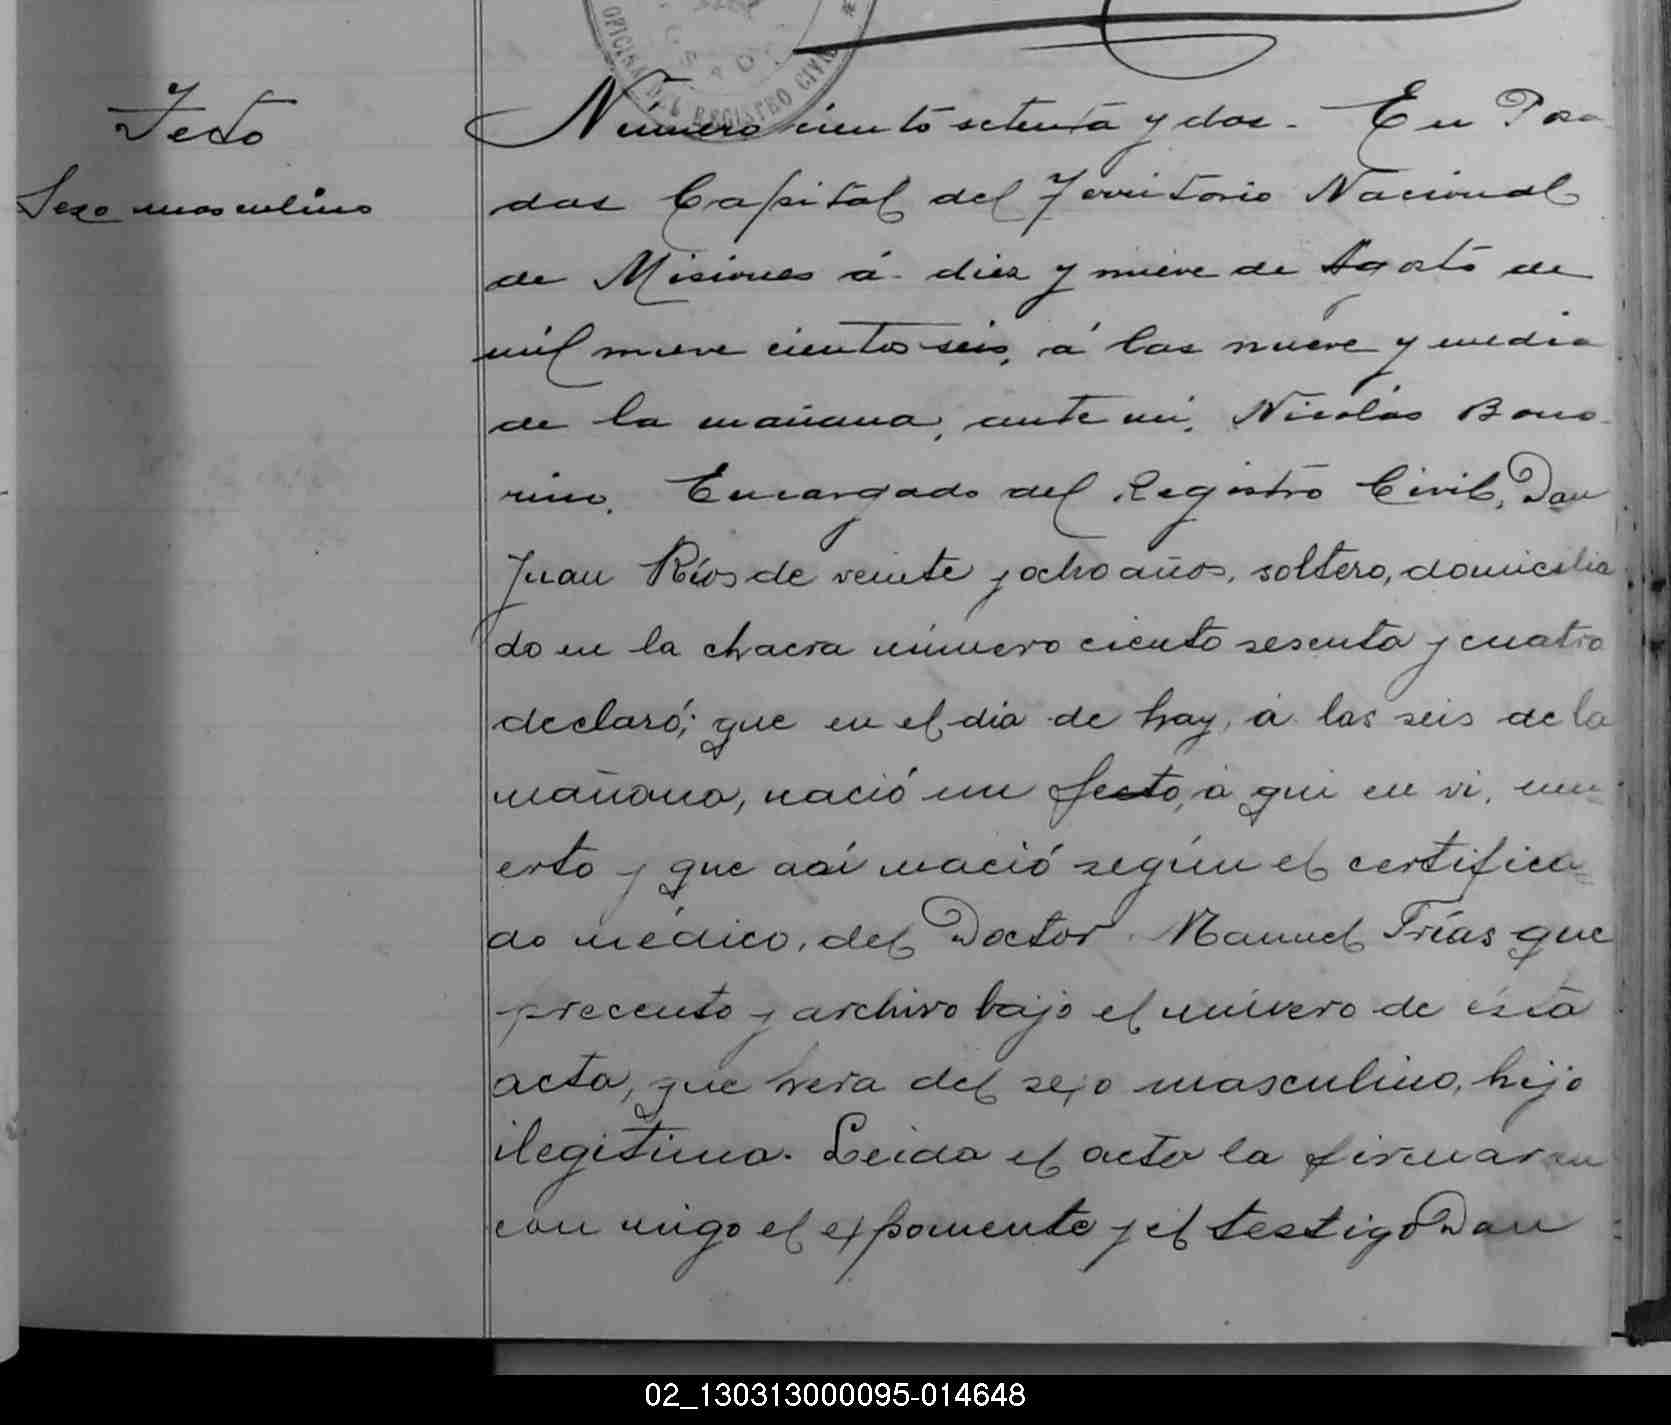 OFICINA DEL REGISTRO CIVIL
Feto
Sexo masculino
Número ciento setenta y dos. En Posa
das Capital del Territorio Nacional
de Misiones á diez y nueve de Agosto de
mil nueve cientos seis, á las nueve y media
de la mañana, ante mi, Nicolás Bono
rino, Encargado del Registro Civil, Don
Juan Ríos de veinte y ocho años, soltero, domicilia
do en la chacra número ciento sesenta y cuatro
declaró; que en el dia de hoy, á las seis de la
mañana, nació un fecto, a qui en vi, mu
erto y que así nació según el certifica
do médico, del Doctor Manuel Frías que
precento y archivo bajo el número de ésta
acta, que hera del sexo masculino, hijo
ilegitimo. Leida el acta la firmaron
con migo el exponente y el testigo Don
02_130313000095-014648